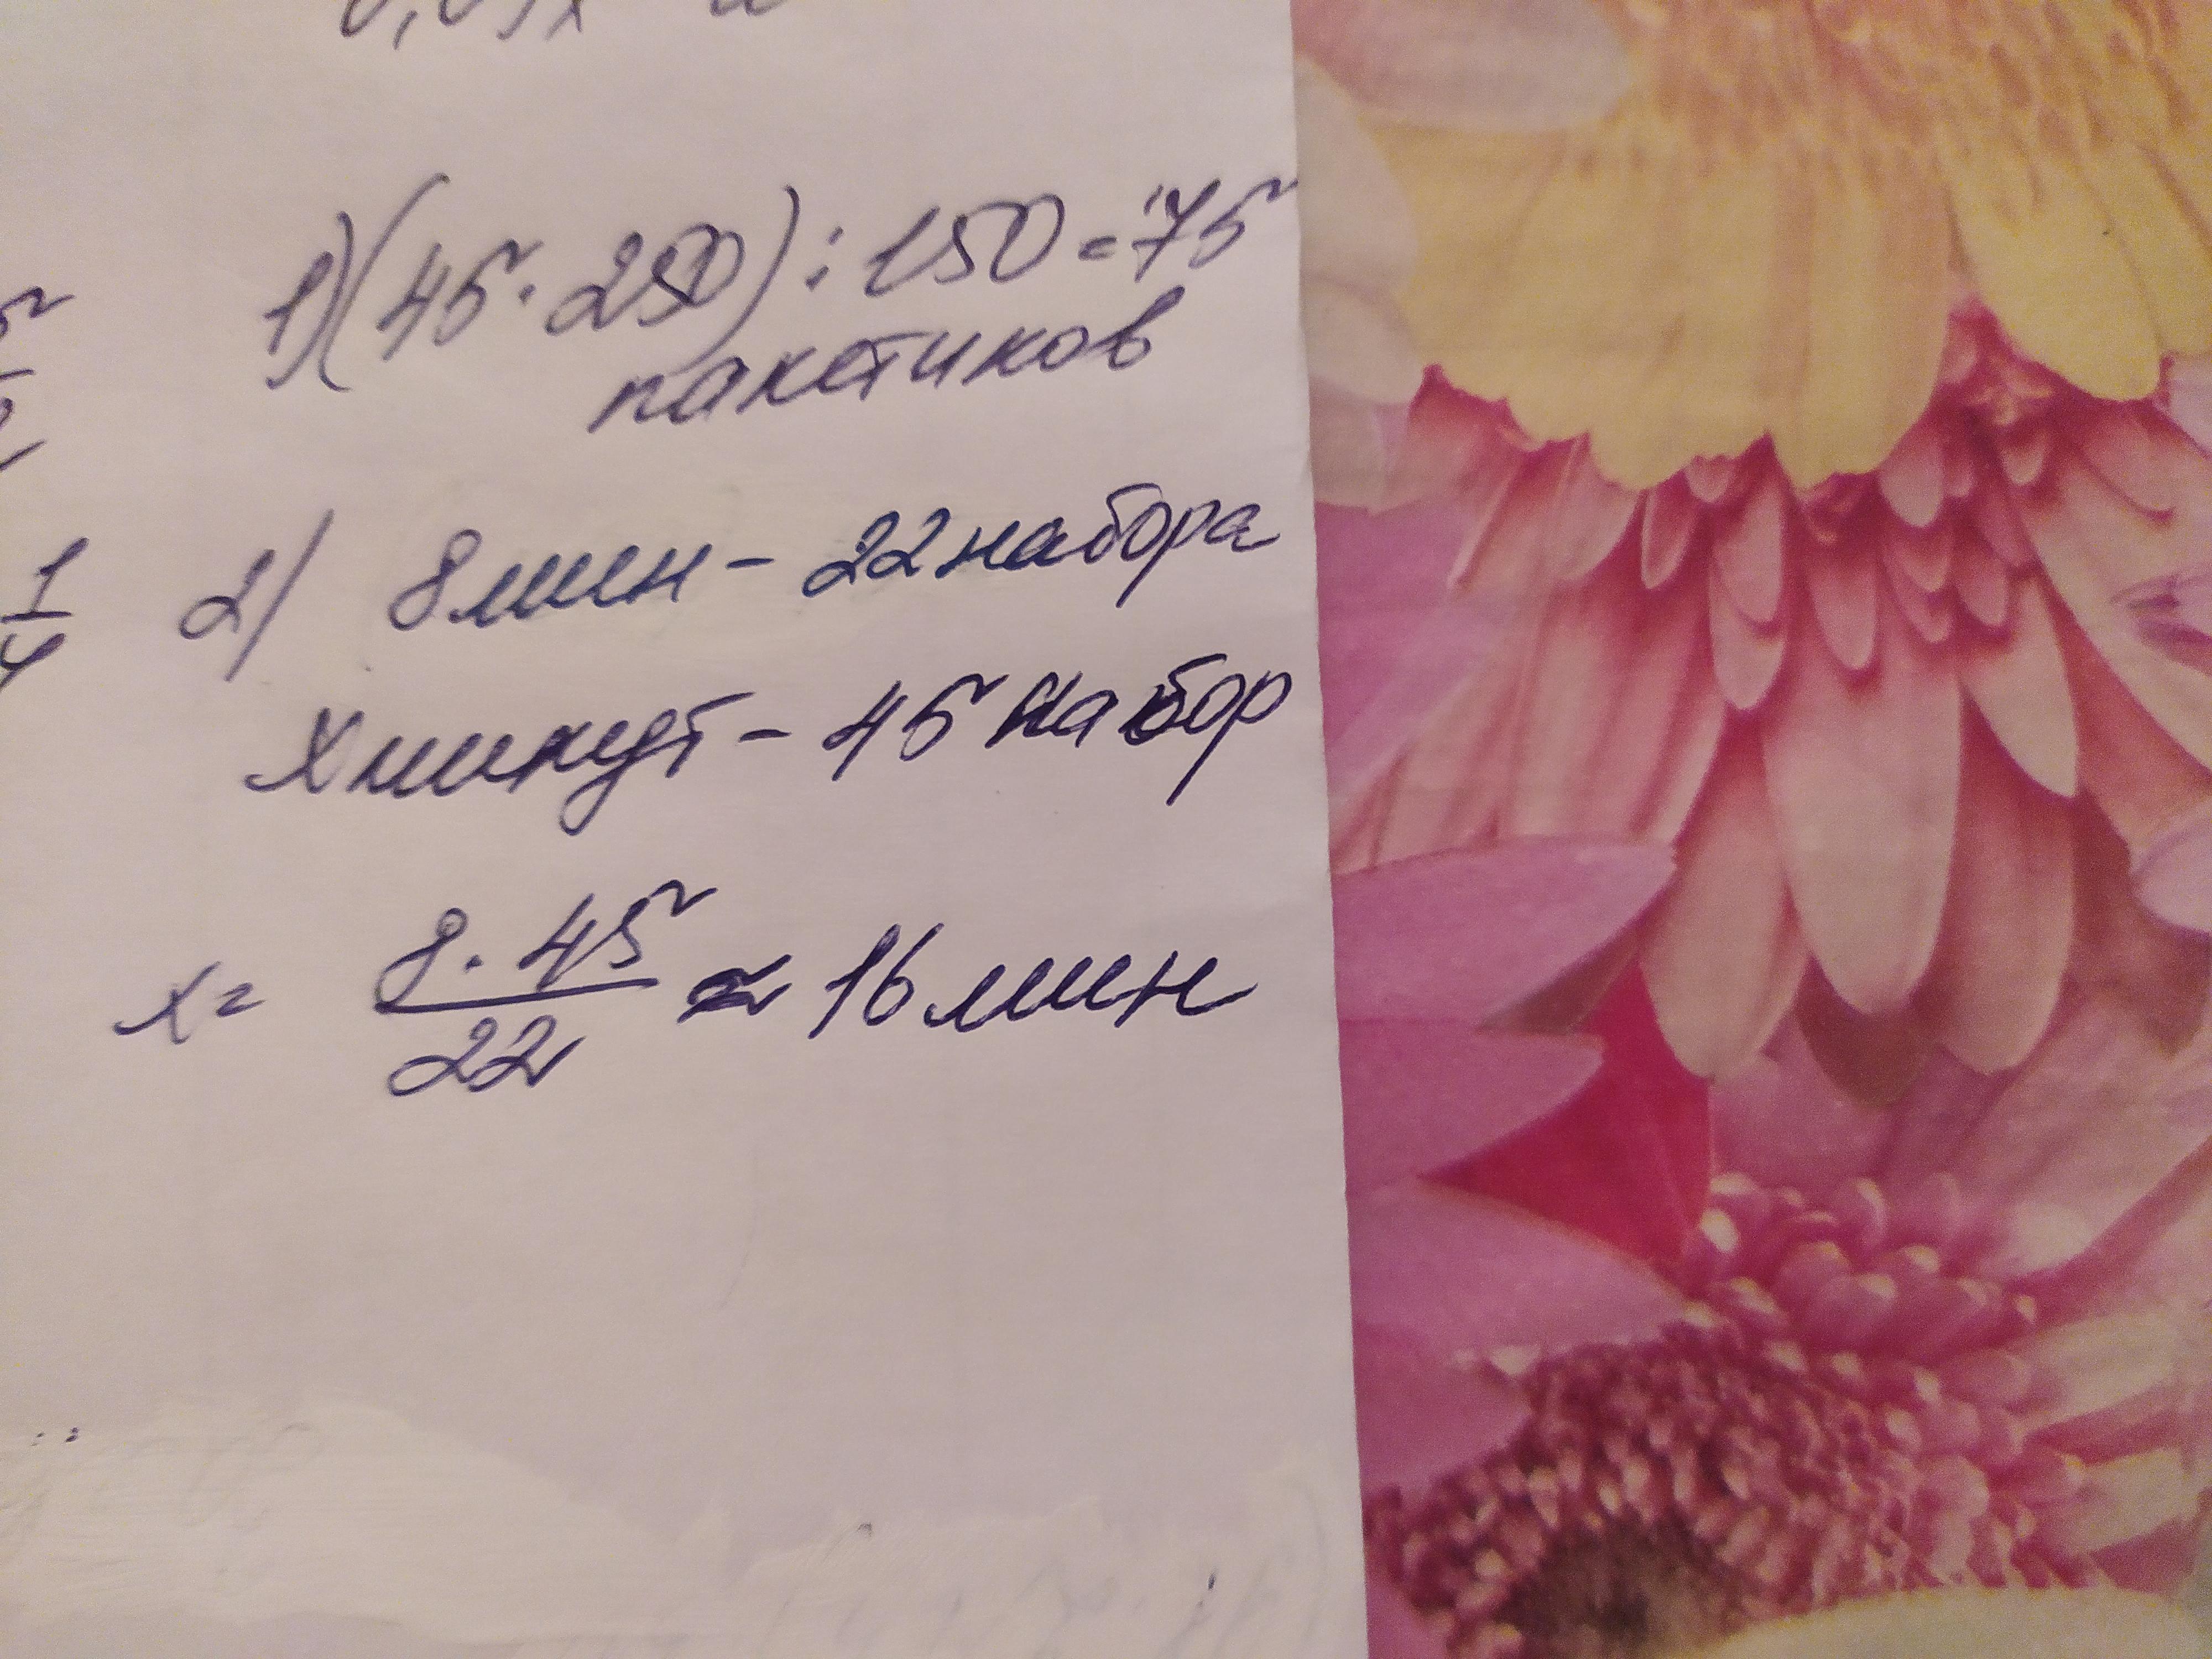 1) (45 · 250) : 150 = 75
пакетиков
2) 8 мин - 22 набора
х минут - 45 набор
1
4
х = 8 · 45 / 22 ≈ 16 мин